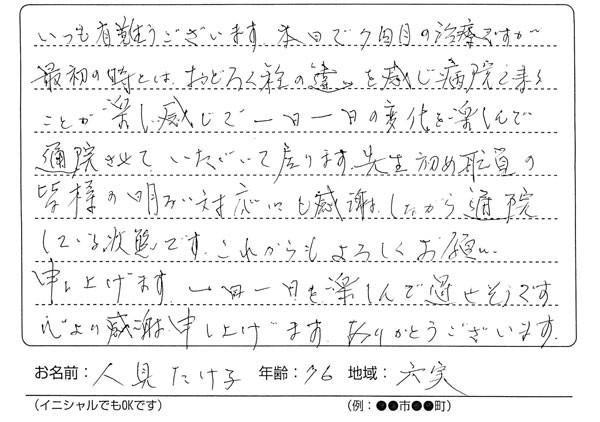 いつも有難うございます。本日で7回目の治療ですが
最初の時とは、おどろく程の違いを感じ病院に来る
ことが楽し感じで一日一日の変化を楽しんで
通院させていただいて居ります。先生初め職員の
皆様の明るい対応にも感謝しながら通院
している状態です。これからもよろしくお願い
申し上げます。一日一日を楽しんで過せそうです
心より感謝申し上げます。ありがとうございます。
お名前：人見たけ子 年齢：76 地域：六実
（イニシャルでもOKです） （例：●●市●●町）